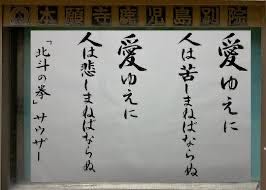 本願寺鹿児島別院
愛ゆえに
人は苦しまねばならぬ
愛ゆえに
人は悲しまねばならぬ
「北斗の拳」サウザー